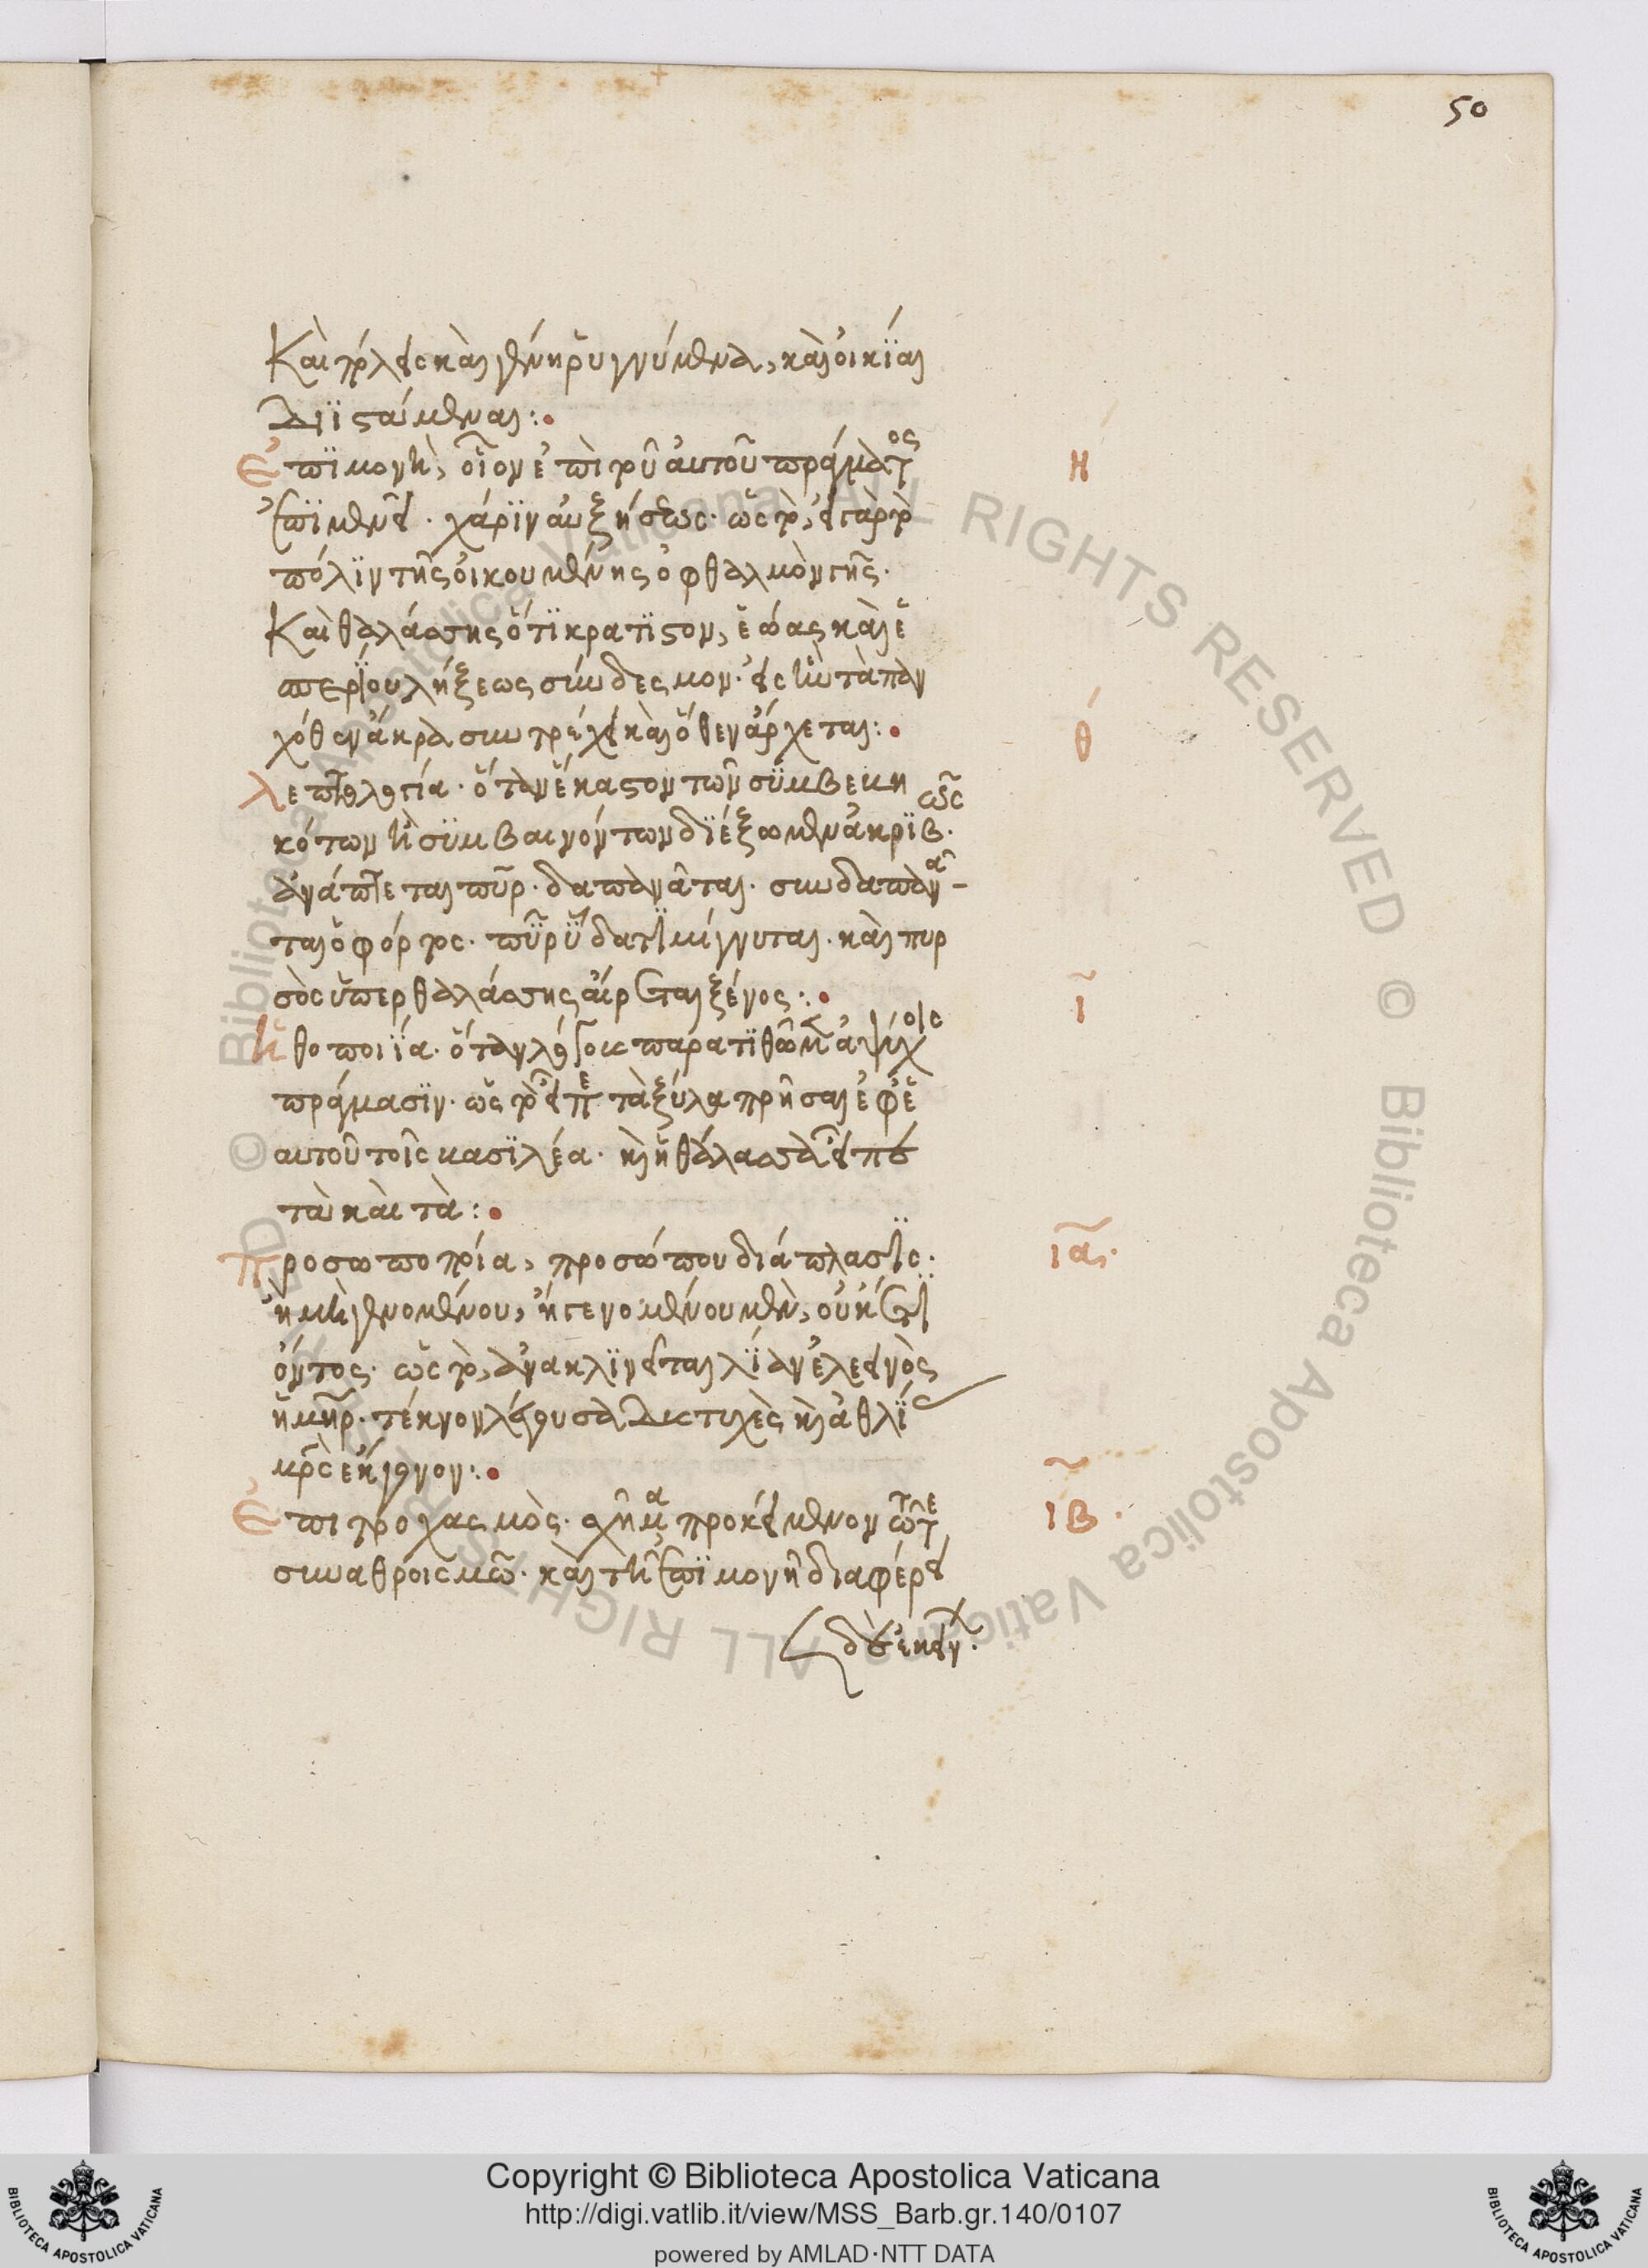 50
Καὶ πόλεις καὶ γένη ῥυγνύμενα, καὶ οἰκίαι
Διϊσταίμεναι:.
Ἐπϊμονὴ, οἷον ἐπὶ τοῦ αὐτοῦ πράγματος
ἐπϊμένει. χάρϊν αὐξήσεως. ὡς τὸ, εἶτα τὸ
πόλϊν τῆς οἰκουμένης ὀφθαλμὸν γῆς.
Καὶ θαλάσσης ὅτϊ κρατϊστον, ἑώας καὶ ἑ
σπερίου λήξεως σύνδεσμον. εἰς ἣν τὰ παν
χόθεν ἄκρα συντρέχει καὶ ὅθεν ἄρχεται:.
Λεπτολογία. ὅταν ἕκαστον τῶν σϋμβεκη
κότων ἢ σϋμβαινόντων δϊέξωμεν ἀκρϊβῶς.
ἀνάπτεται πῦρ. δαπανᾶται. συνδαπανᾶ-
ται ὁ φόρτος. πῦρ ὕδατϊ μίγνυται. καὶ πυρ
σὸς ὑπὲρ θαλάσσης αἴρεται ξένος:.
Ἠθοποιϊΐα. ὅταν λόγοις παρατϊθῶμεν ἀψύχοις
πράγμασϊν. ὡς τὸ εἶπε τὰ ξύλα πρῆσαι ἐφ' ἑ
αυτοῦ τοῖς κασϊλέα. καὶ ἡ θάλασσα εἶπε
ταὺ καὶ τὰ:.
Προσωποποιΐα, προσώπου διάπλασϊς.
ἢ μὴ γενομένου, ἢ γενομένου μὲν, οὐκ ἔτϊ
ὄντος. ὡς τὸ, ἀνακλϊνεῖται λϊαν ἐλεεινὸς
ἡ μήτηρ. τέκνον λέγουσα Δυστυχὲς καὶ ἀθλϊας
μητρὸς ἔκγονον:.
Ἐπιτροχασμὸς. σχῆμα προκείμενον τῷ τε
συναθροισμῷ. καὶ τῇ ἐπϊμονῇ διαφέρει
Η
θ
ι
ια.
ιβ.
Copyright © Biblioteca Apostolica Vaticana
http://digi.vatlib.it/view/MSS_Barb.gr.140/0107
powered by AMLAD·NTT DATA
BIBLIOTECA APOSTOLICA VATICANA
BIBLIOTECA APOSTOLICA VATICANA
© Biblioteca Apostolica Vaticana ALL RIGHTS RESERVED © Biblioteca Apostolica Vaticana ALL RIGHTS RESERVED